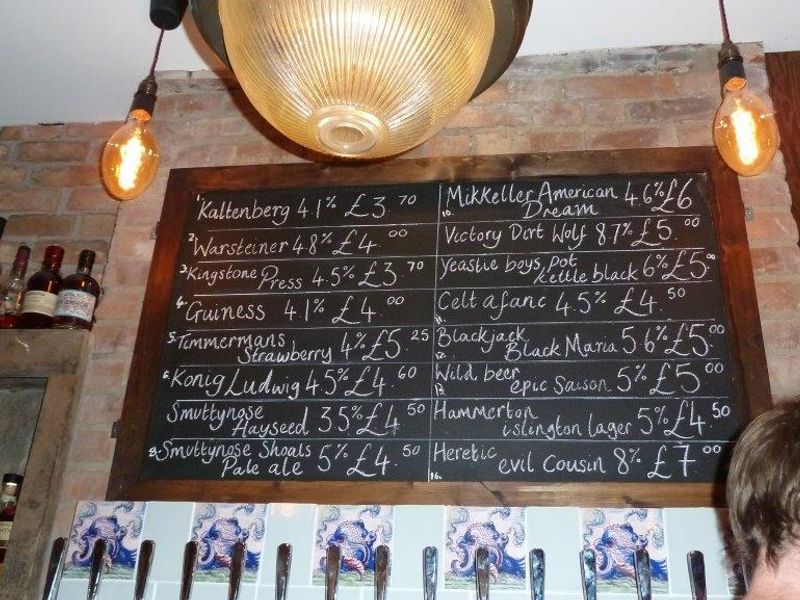 1. Kaltenberg 4.1% £3.70
2. Warsteiner 4.8% £4.00
3. Kingstone Press 4.5% £3.70
4. Guiness 4.1% £4.00
5. Timmermans
Strawberry 4% £5.25
6. Konig Ludwig 4.5% £4.60
Smuttynose
Hayseed 3.5% £4.50
8. Smuttynose Shoals
Pale ale 5% £4.50
Mikkeller American
10. Dream 4.6% £6
Victory Dirt Wolf 8.7% £5.00
Yeastie boys pot
kettle black 6% £5.00
Celt afanc 4.5% £4.50
Blackjack
12. Black Maria 5.6% £5.00
Wild beer
13. epic Saison 5% £5.00
Hammerton
islington lager 5% £4.50
Heretic
16. evil Cousin 8% £7.00